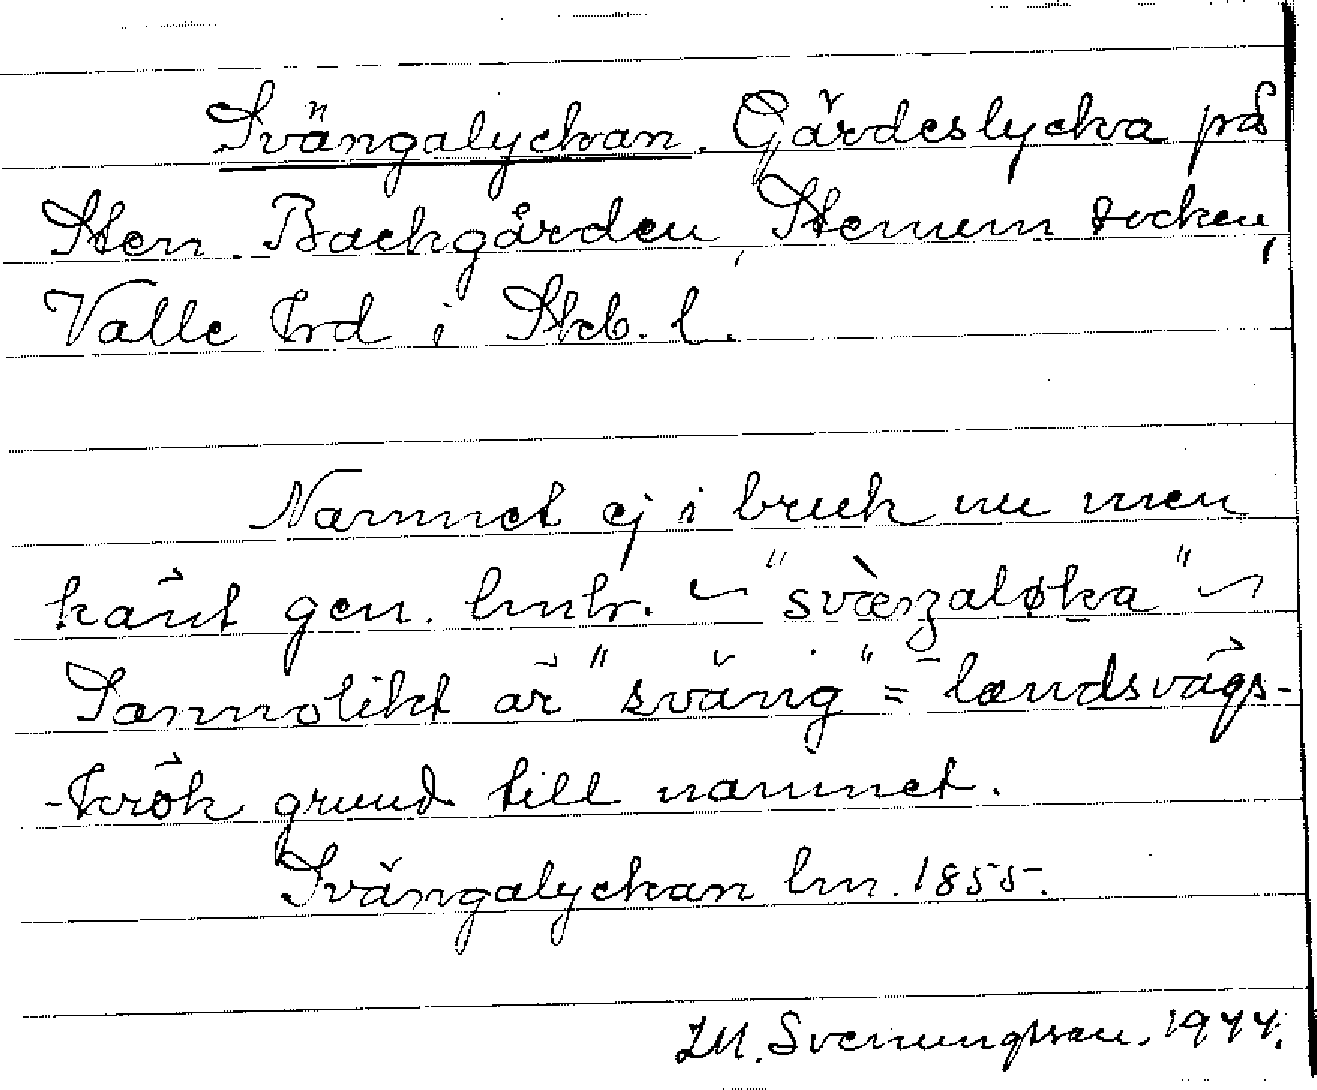 Svängalyckan. Gärdeslycka på
Sten. Backgården, Stenum socken,
Valle hrd i Skb. l.
Namnet ej i bruk nu men
känt gen. lmtr. ~ "svæŋaløka" ~
Sannolikt är "sväng" = landsvägs-
-krök grund till namnet.
Svängalyckan lm. 1855.
M. Svenungsson. 1944.